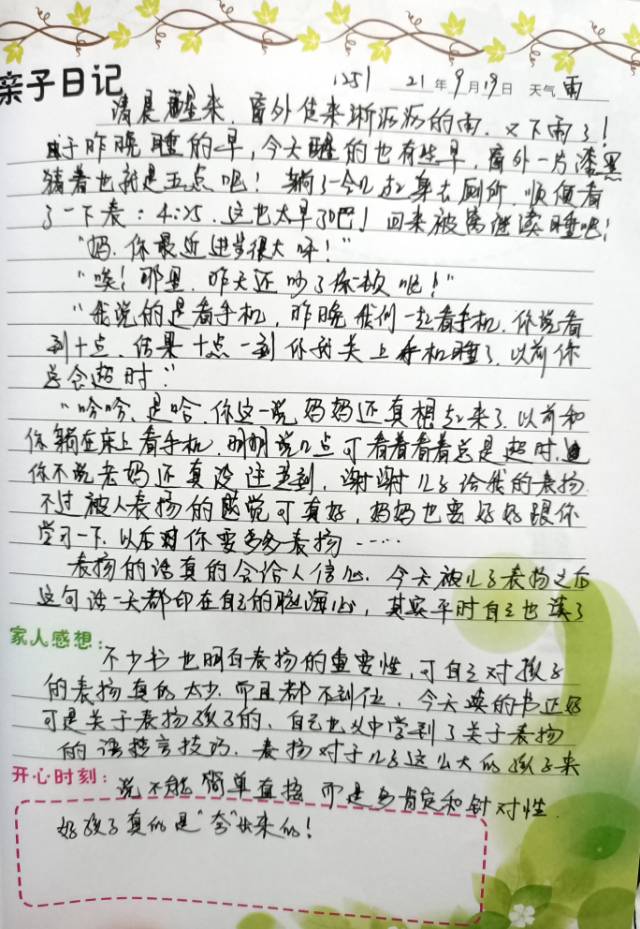 亲子日记 1251 21年9月19日 天气 雨
清晨醒来，窗外传来淅沥沥的雨，又下雨了！
由于昨晚睡的早，今天醒的也有些早，窗外一片漆黑
猜着也就是五点吧！躺了一会儿起身去厕所，顺便看
了一下表：4:25，这也太早了吧！回来被窝继续睡吧！
“妈，你最近进步很大呀！”
“唉！那里，昨天还吵了你一顿呢！”
“我说的是看手机，昨晚我们一起看手机，你说看
到十点，结果十点一到你就关上手机睡了，以前你
总会超时。”
“哈哈，是哈，你这一说妈妈还真想起来了，以前和
你躺在床上看手机，明明说几点可看着看着总是超时，
你不说老妈还真没注意到，谢谢儿子给我的表扬
不过被人表扬的感觉可真好，妈妈也要好好跟你
学习一下，以后对你要多多表扬……
表扬的话真的会给人信心，今天被儿子表扬之后
这句话一天都印在自己的脑海心，其实平时自己也读了
家人感想：
不少书也明白表扬的重要性，可自己对孩子
的表扬真的太少，而且都不到位，今天读的书正好
可是关于表扬孩子的，自己也从中学到了关于表扬
的语言技巧，表扬对于儿子这么大的孩子来
开心时刻：
说不能简单直接，而是多肯定和针对性。
好孩子真的是“夸”出来的！